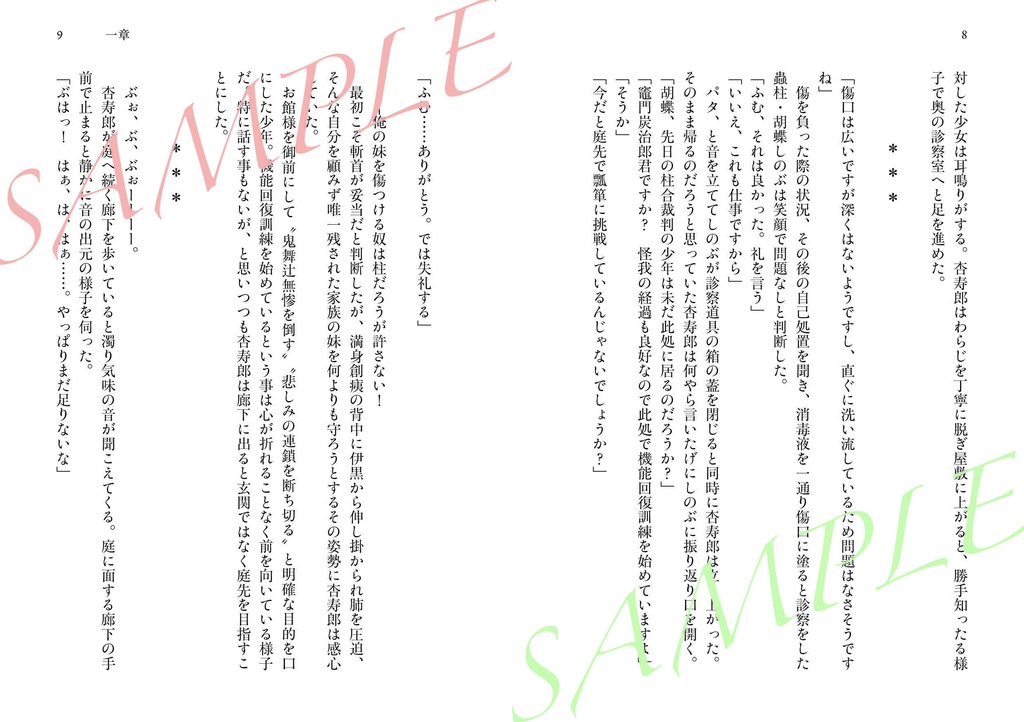 8
対した少女は耳鳴りがする。杏寿郎はわらじを丁寧に脱ぎ屋敷に上がると、勝手知ったる様
子で奥の診察室へと足を進めた。
＊＊＊
「傷口は広いですが深くはないようですし、直ぐに洗い流しているため問題はなさそうです
ね」
傷を負った際の状況、その後の自己処置を聞き、消毒液を一通り傷口に塗ると診察をした
蟲柱・胡蝶しのぶは笑顔で問題なしと判断した。
「ふむ、それは良かった。礼を言う」
「いいえ、これも仕事ですから」
パタ、と音を立ててしのぶが診察道具の箱の蓋を閉じると同時に杏寿郎は立ち上がった。
そのまま帰るのだろうと思っていた杏寿郎は何やら言いたげにしのぶに振り返り口を開く。
「胡蝶、先日の柱合裁判の少年は未だ此処に居るのだろうか？」
「竈門炭治郎君ですか？　怪我の経過も良好なので此処で機能回復訓練を始めていますよ」
「そうか」
「今だと庭先で瓢箪に挑戦しているんじゃないでしょうか？」
「ふむ……ありがとう。では失礼する」
俺の妹を傷つける奴は柱だろうが許さない！
最初こそ斬首が妥当だと判断したが、満身創痍の背中に伊黒から伸し掛かられ肺を圧迫、
そんな自分を顧みず唯一残された家族の妹を何よりも守ろうとするその姿勢に杏寿郎は感心
していた。
お館様を御前にして〝鬼舞辻無惨を倒す〟〝悲しみの連鎖を断ち切る〟と明確な目的を口
にした少年。機能回復訓練を始めているという事は心が折れることなく前を向いている様子
だ。特に話す事もないが、と思いつつも杏寿郎は廊下に出ると玄関ではなく庭先を目指すこ
とにした。
＊＊＊
ぶぉ、ぶ、ぶぉーーー。
杏寿郎が庭へ続く廊下を歩いていると濁り気味の音が聞こえてくる。庭に面する廊下の手
前で止まると静かに音の出元の様子を伺った。
「ぶはっ！　はぁ、は、はぁ……。やっぱりまだ足りないな」
一章
9
SAMPLE
SAMPLE